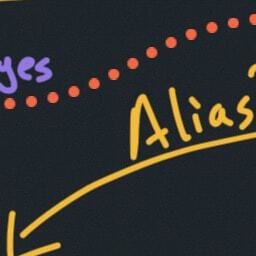 yes
Alias